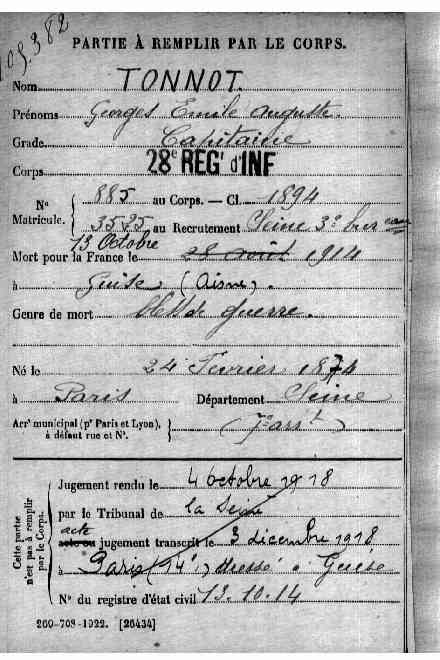 109.382
PARTIE À REMPLIR PAR LE CORPS.
Nom TONNOT.
Prénoms Georges Emile Auguste.
Grade Capitaine
Corps 28e REGt d'INF
No Matricule. { 885 au Corps. — Cl. 1894
3535 au Recrutement Seine 3e bureau
13 Octobre
Mort pour la France le 28 août 1914
à Guise (Aisne).
Genre de mort bless. de guerre.
Né le 24 Février 1874
à Paris Département Seine
Arrt municipal (pr Paris et Lyon), à défaut rue et No. } (7e arrt)
Cette partie n'est pas à remplir par le Corps.
Jugement rendu le 4 octobre 1918
par le Tribunal de la Seine
acte
acte ou jugement transcrit le 3 décembre 1918
à Paris (14e) dressé à Guise
No du registre d'état civil 13.10.14
260-708-1922. [26434]